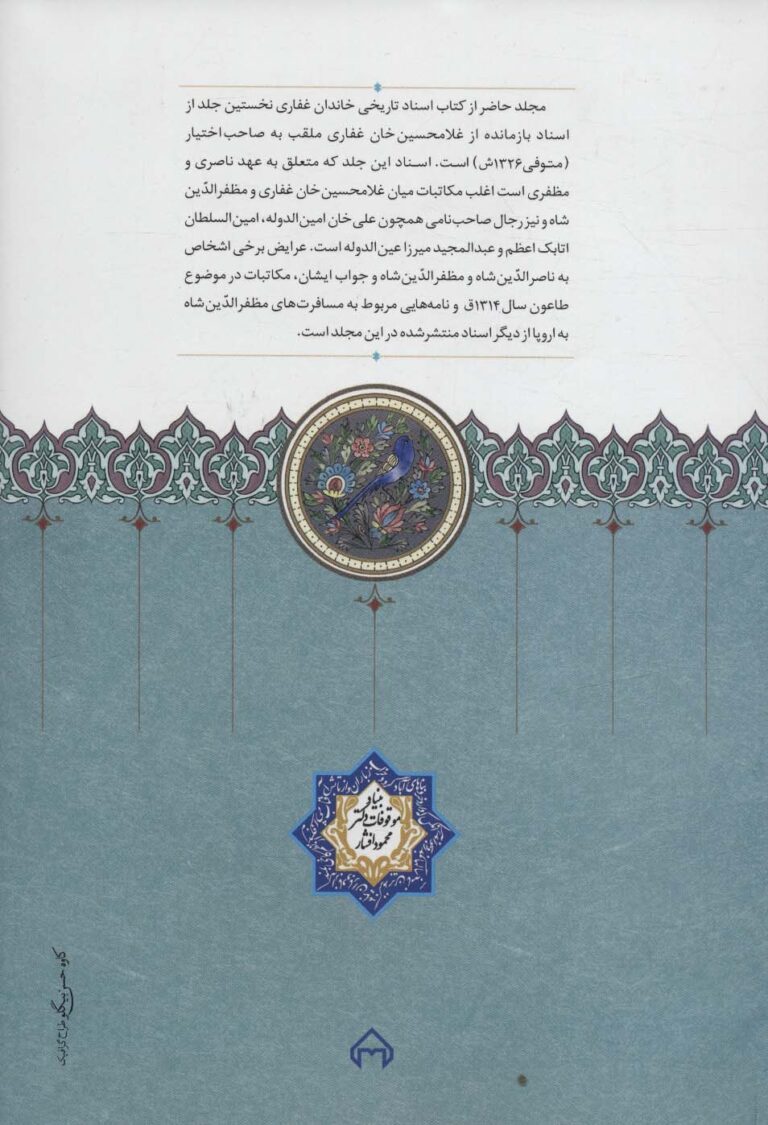 مجلد حاضر از کتاب اسناد تاریخی خاندان غفاری نخستین جلد از
اسناد بازمانده از غلامحسین‌خان غفاری ملقب به صاحب‌اختیار
(متوفی۱۳۲۶ش) است. اسناد این جلد که متعلق به عهد ناصری و
مظفری است اغلب مکاتبات میان غلامحسین‌خان غفاری و مظفرالدّین
شاه و نیز رجال صاحب‌نامی همچون علی‌خان امین‌الدوله، امین‌السلطان
اتابک اعظم و عبدالمجید میرزا عین‌الدوله است. عرایض برخی اشخاص
به ناصرالدّین شاه و مظفرالدّین‌شاه و جواب ایشان، مکاتبات در موضوع
طاعون سال ۱۳۱۴ق و نامه‌هایی مربوط به مسافرت‌های مظفرالدّین‌شاه
به اروپا از دیگر اسناد منتشرشده در این مجلد است.
بنیاد
موقوفات دکتر
محمود افشار
کاوه حسن‌بیگلو طراح گرافیک